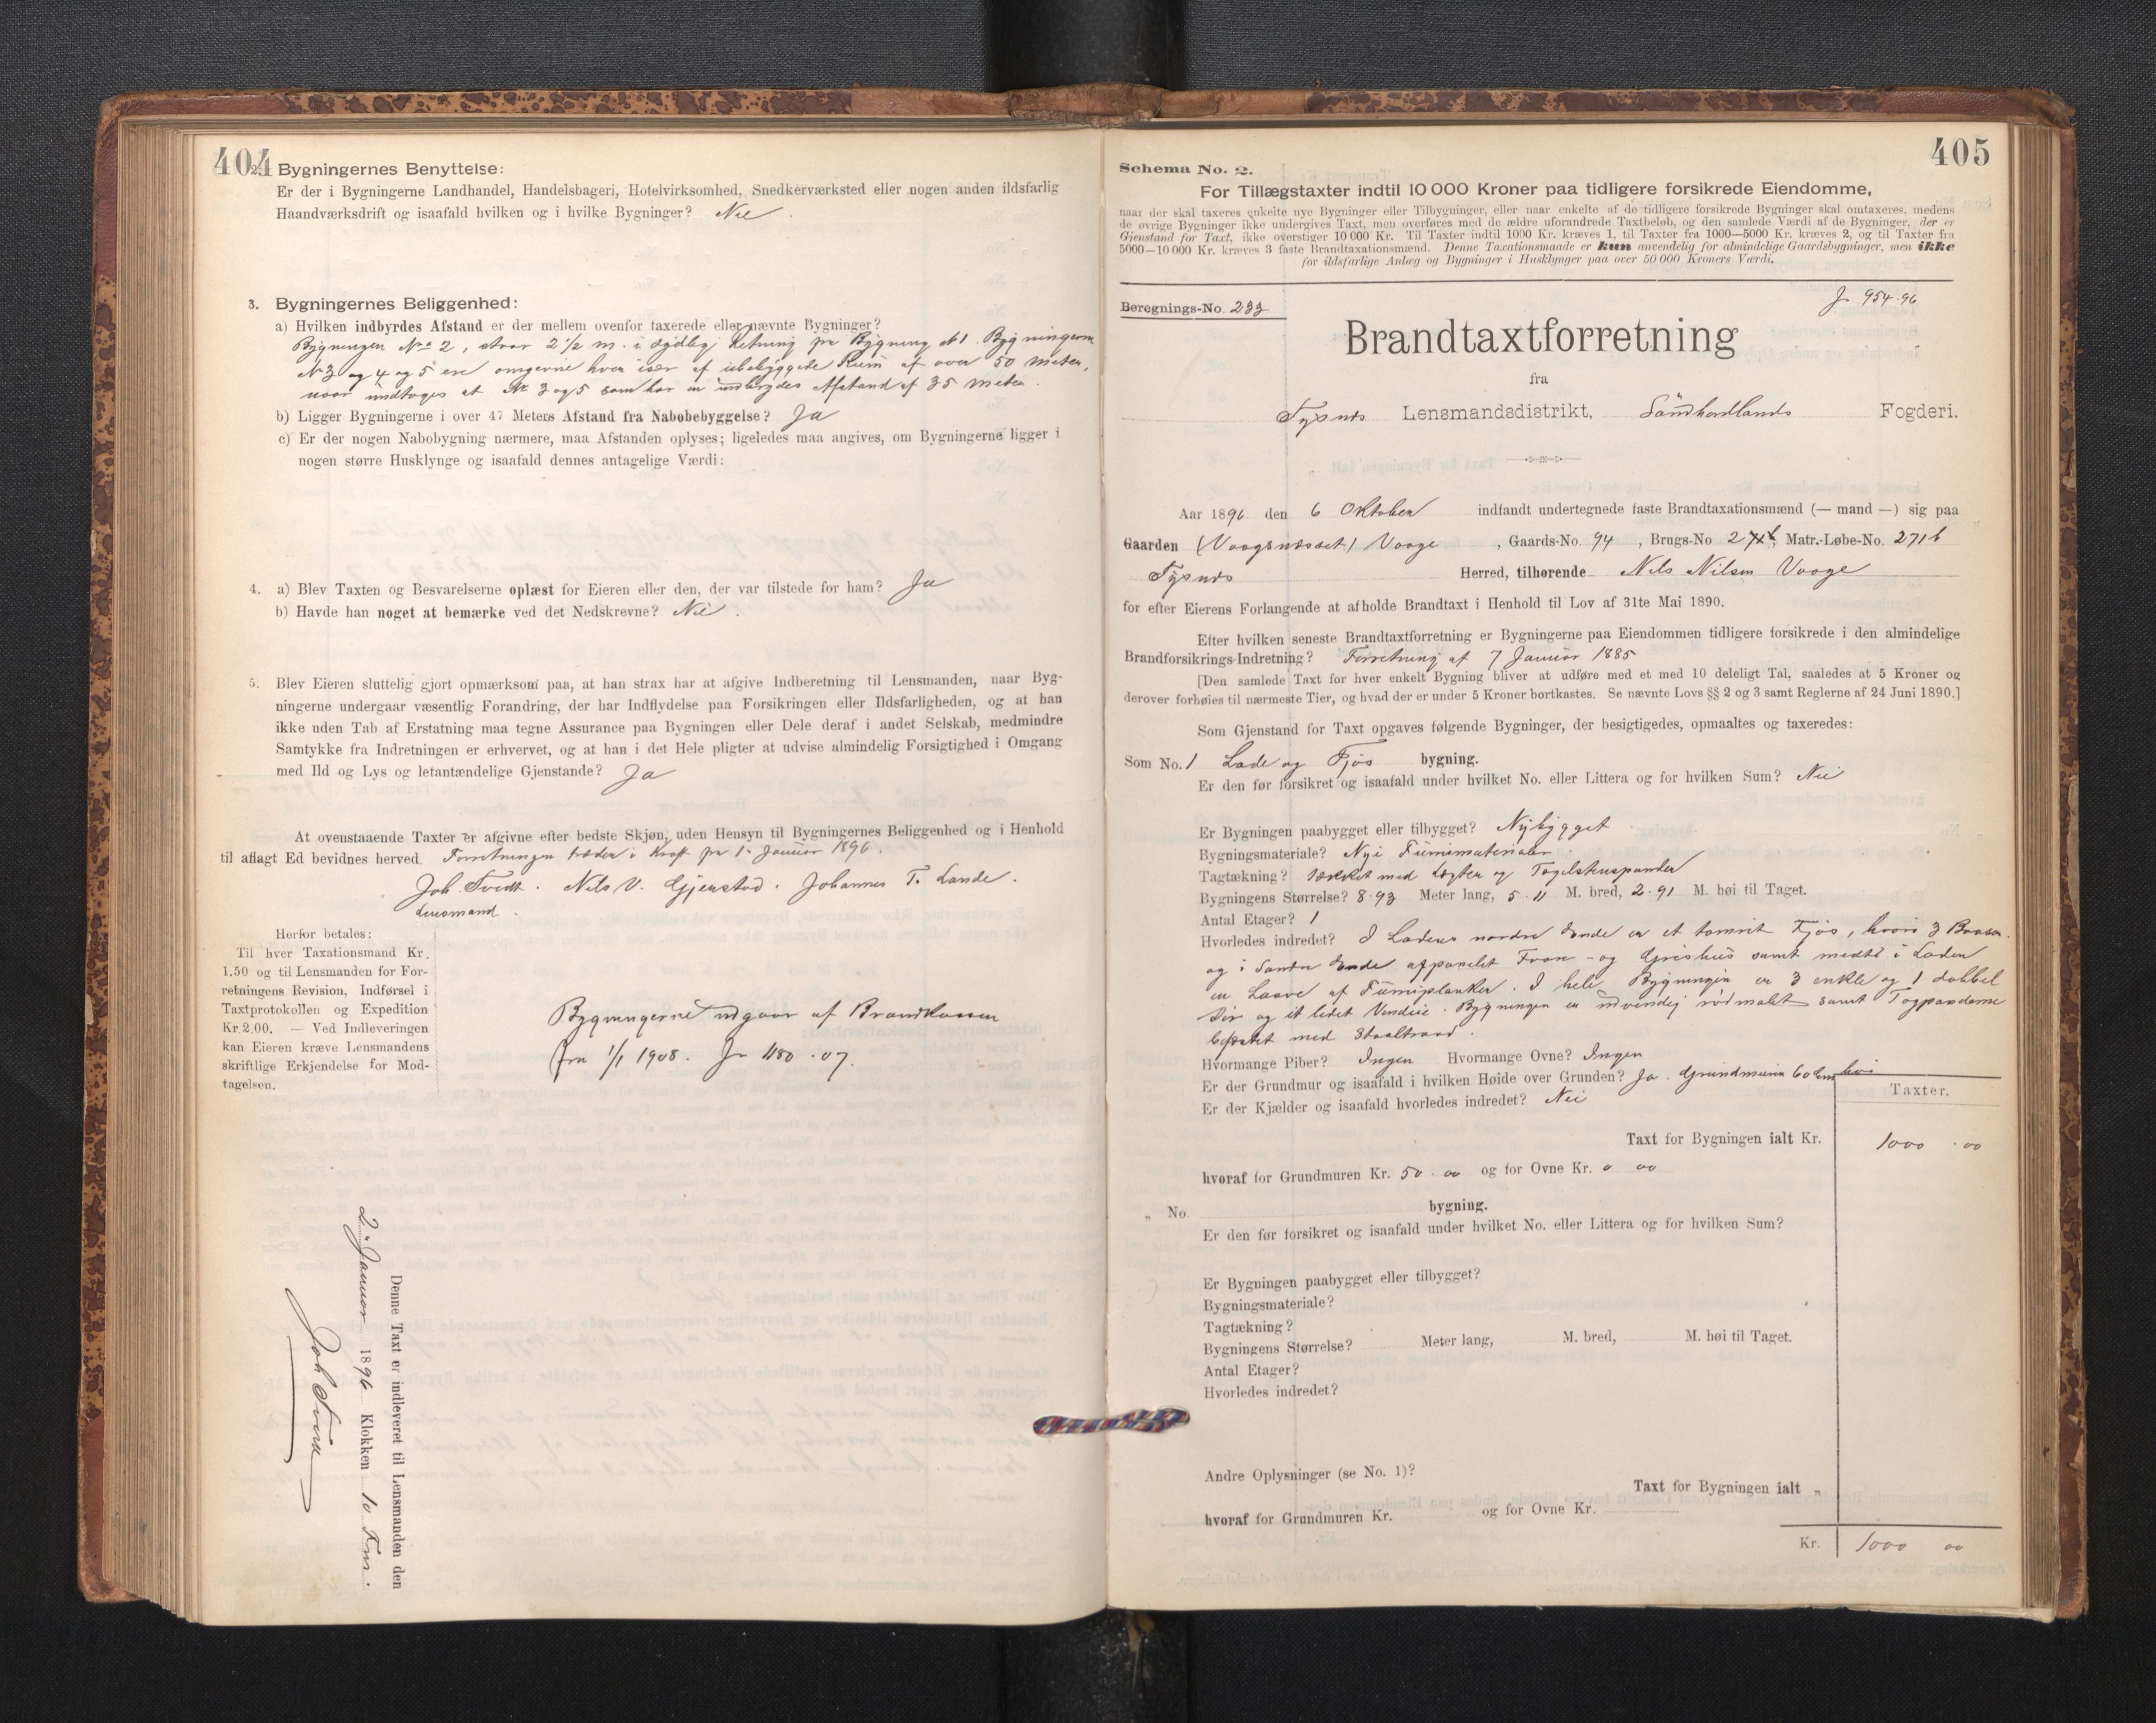 404
2. Bygningernes Benyttelse:
Er der i Bygningerne Landhandel, Handelsbageri, Hotelvirksomhed, Snedkerværksted eller nogen anden ildsfarlig
Haandværksdrift og isaafald hvilken og i hvilke Bygninger? Nei.
3. Bygningernes Beliggenhed:
a) Hvilken indbyrdes Afstand er der mellem ovenfor taxerede eller nævnte Bygninger?
Bygningen No 2, staar 2 1/2 m. i sydlig Retning fra Bygning N 1. Bygningerne
N 3 og 4 og 5 ere omgivne hver især af ubebyggede Rum af over 50 meter,
naar undtages at No 3 og 5 som har en indbyrdes Afstand af 35 meter.
b) Ligger Bygningerne i over 47 Meters Afstand fra Nabobebyggelse? Ja
c) Er der nogen Nabobygning nærmere, maa Afstanden oplyses; ligeledes maa angives, om Bygningerne ligger i
nogen større Husklynge og isaafald dennes antagelige Værdi:
4. a) Blev Taxten og Besvarelserne oplæst for Eieren eller den, der var tilstede for ham? Ja
b) Havde han noget at bemærke ved det Nedskrevne? Nei.
5. Blev Eieren sluttelig gjort opmærksom paa, at han strax har at afgive Indberetning til Lensmanden, naar Byg-
ningerne undergaar væsentlig Forandring, der har Indflydelse paa Forsikringen eller Ildsfarligheden, og at han
ikke uden Tab af Erstatning maa tegne Assurance paa Bygningen eller Dele deraf i andet Selskab, medmindre
Samtykke fra Indretningen er erhvervet, og at han i det Hele pligter at udvise almindelig Forsigtighed i Omgang
med Ild og Lys og letantændelige Gjenstande? Ja
At ovenstaaende Taxter er afgivne efter bedste Skjøn, uden Hensyn til Bygningernes Beliggenhed og i Henhold
til aflagt Ed bevidnes herved. Forretningen træder i Kraft fra 1. Januar 1896.
Joh. Tvedt. Nels V. Gjerstad. Johannes T. Lande.
Lensmand.
Herfor betales:
Til hver Taxationsmand Kr.
1.50 og til Lensmanden for For-
retningens Revision, Indførsel i
Taxtprotokollen og Expedition
Kr. 2.00. — Ved Indleveringen
kan Eieren kræve Lensmandens
skriftlige Erkjendelse for Mod-
tagelsen.
Bygningerne udgaar af Brandkassen
fra 1/1 1908. Jr 1180.07.
Denne Taxt er indleveret til Lensmanden den
2. Januar 1896 Klokken 10 Fm.
Joh Tvedt
405
Schema No. 2.
For Tillægstaxter indtil 10 000 Kroner paa tidligere forsikrede Eiendomme,
naar der skal taxeres enkelte nye Bygninger eller Tilbygninger, eller naar enkelte af de tidligere forsikrede Bygninger skal omtaxeres, medens
de øvrige Bygninger ikke undergives Taxt, men overføres med de ældre uforandrede Taxtbeløb, og den samlede Værdi af de Bygninger, der er
Gjenstand for Taxt, ikke overstiger 10 000 Kr. Til Taxter indtil 1000 Kr. kræves 1, til Taxter fra 1000—5000 Kr. kræves 2, og til Taxter fra
5000—10 000 Kr. kræves 3 faste Brandtaxationsmænd. Denne Taxationsmaade er kun anvendelig for almindelige Gaardsbygninger, men ikke
for ildsfarlige Anlæg og Bygninger i Husklynger paa over 50 000 Kroners Værdi.
Beregnings-No. 233
Jr 954.96
Brandtaxtforretning
fra
Tysnes Lensmandsdistrikt, Søndhordlands Fogderi.
Aar 1896 den 6 Oktober indfandt undertegnede faste Brandtaxationsmænd (— mand —) sig paa
Gaarden (Vaagsnæsset) Vaage, Gaards-No. 94, Brugs-No. 2, Matr.-Løbe-No. 271b
Tysnes Herred, tilhørende Nels Nilsen Vaage
for efter Eierens Forlangende at afholde Brandtaxt i Henhold til Lov af 31te Mai 1890.
Efter hvilken seneste Brandtaxtforretning er Bygningerne paa Eiendommen tidligere forsikrede i den almindelige
Brandforsikrings-Indretning? Forretning af 7 Januar 1885
[Den samlede Taxt for hver enkelt Bygning bliver at udføre med et med 10 deleligt Tal, saaledes at 5 Kroner og
derover forhøies til nærmeste Tier, og hvad der er under 5 Kroner bortkastes. Se nævnte Lovs §§ 2 og 3 samt Reglerne af 24 Juni 1890.]
Som Gjenstand for Taxt opgaves følgende Bygninger, der besigtigedes, opmaaltes og taxeredes:
Som No. 1 Lade og Fjøs bygning.
Er den før forsikret og isaafald under hvilket No. eller Littera og for hvilken Sum? Nei
Er Bygningen paabygget eller tilbygget? Nybygget
Bygningsmateriale? Nyi Furumaterialer
Tagtækning? tækket med Lægter og Tagelstenspander
Bygningens Størrelse? 8.93 Meter lang, 5.11 M. bred, 2.91 M. høi til Taget.
Antal Etager? 1
Hvorledes indredet? I Ladens nordre Ende er et tømret Fjøs, hvori 3 Baaser
og i Søndre Ende afpanelet Faar- og Grishus samt midt i Laden
en Laave af Furuplanker. I hele Bygningen er 3 enkle og 1 dobbel
Dør og et lidet Vindue. Bygningen er udvendig rødmalet samt Tagpanderne
med Staaltraad.
Hvormange Piber? Ingen Hvormange Ovne? Ingen
Er der Grundmur og isaafald i hvilken Høide over Grunden? Ja. Grundmuren 60 Cm høi
Er der Kjælder og isaafald hvorledes indredet? Nei
Taxter.
Taxt for Bygningen ialt Kr. 1000.00
hvoraf for Grundmuren Kr. 50.00 og for Ovne Kr. 0 00
„ No. bygning.
Er den før forsikret og isaafald under hvilket No. eller Littera og for hvilken Sum?
Er Bygningen paabygget eller tilbygget?
Bygningsmateriale?
Tagtækning?
Bygningens Størrelse? Meter lang, M. bred, M. høi til Taget.
Antal Etager?
Hvorledes indredet?
Andre Oplysninger (se No. 1)?
Taxt for Bygningen ialt „
hvoraf for Grundmuren Kr. og for Ovne Kr.
Kr. 1000 00